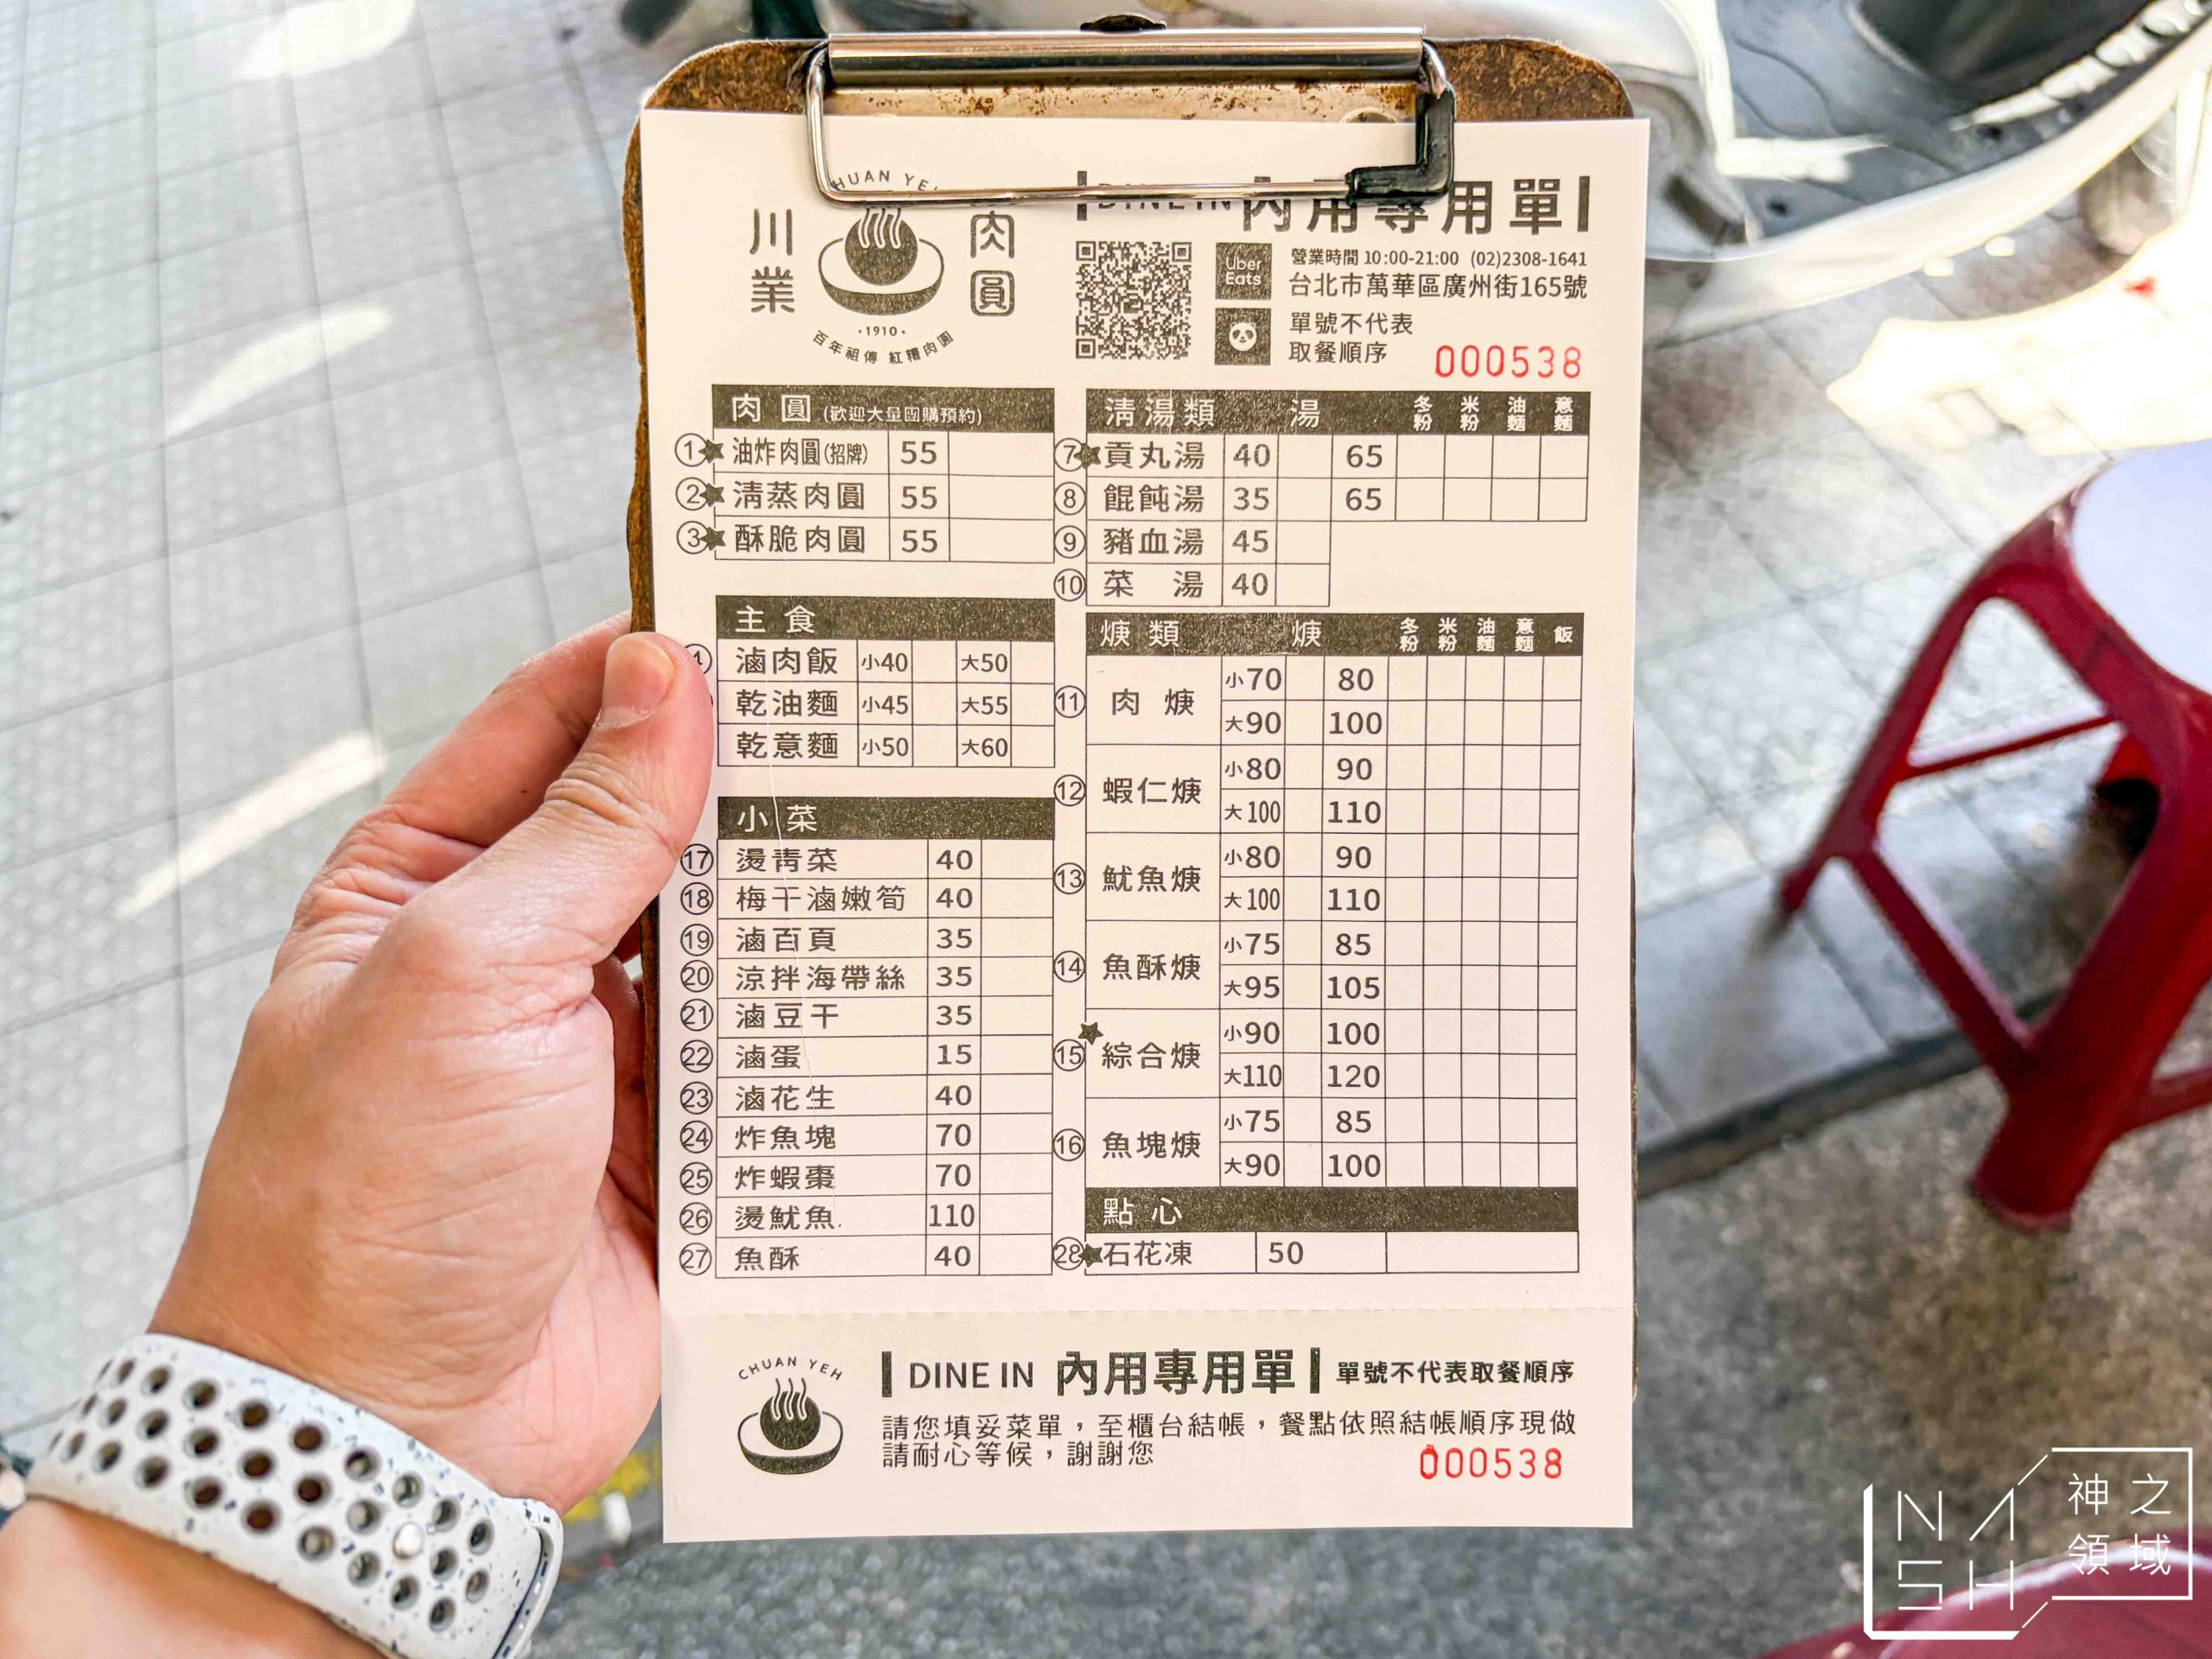 川業 肉圓
·1910·
百年祖傳 紅糟肉圓
內用專用單
Uber Eats
營業時間 10:00-21:00 (02)2308-1641
台北市萬華區廣州街165號
單號不代表
取餐順序
000538
肉圓 (歡迎大量團購預約)
① 油炸肉圓(招牌) 55
② 清蒸肉圓 55
③ 酥脆肉圓 55
主食
滷肉飯 小40 大50
乾油麵 小45 大55
乾意麵 小50 大60
小菜
⑰ 燙青菜 40
⑱ 梅干滷嫩筍 40
⑲ 滷百頁 35
⑳ 涼拌海帶絲 35
㉑ 滷豆干 35
㉒ 滷蛋 15
㉓ 滷花生 40
㉔ 炸魚塊 70
㉕ 炸蝦棗 70
㉖ 燙魷魚 110
㉗ 魚酥 40
清湯類 湯 冬粉 米粉 油麵 意麵
⑦ 貢丸湯 40 65
⑧ 餛飩湯 35 65
⑨ 豬血湯 45
⑩ 菜 湯 40
焿類 焿 冬粉 米粉 油麵 意麵 飯
⑪ 肉焿 小70 80
大90 100
⑫ 蝦仁焿 小80 90
大100 110
⑬ 魷魚焿 小80 90
大100 110
⑭ 魚酥焿 小75 85
大95 105
⑮ 綜合焿 小90 100
大110 120
⑯ 魚塊焿 小75 85
大90 100
點心
㉘ 石花凍 50
CHUAN YEH
DINE IN 內用專用單 單號不代表取餐順序
請您填妥菜單，至櫃台結帳，餐點依照結帳順序現做
請耐心等候，謝謝您
000538
NASH
神之領域